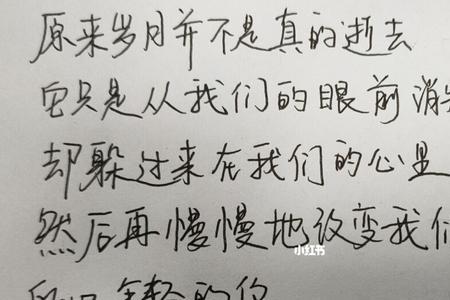 原来岁月并不是真的逝去
它只是从我们的眼前消
却躲过来在我们的心里
然后再慢慢地改变我们
小红书
年轻的你